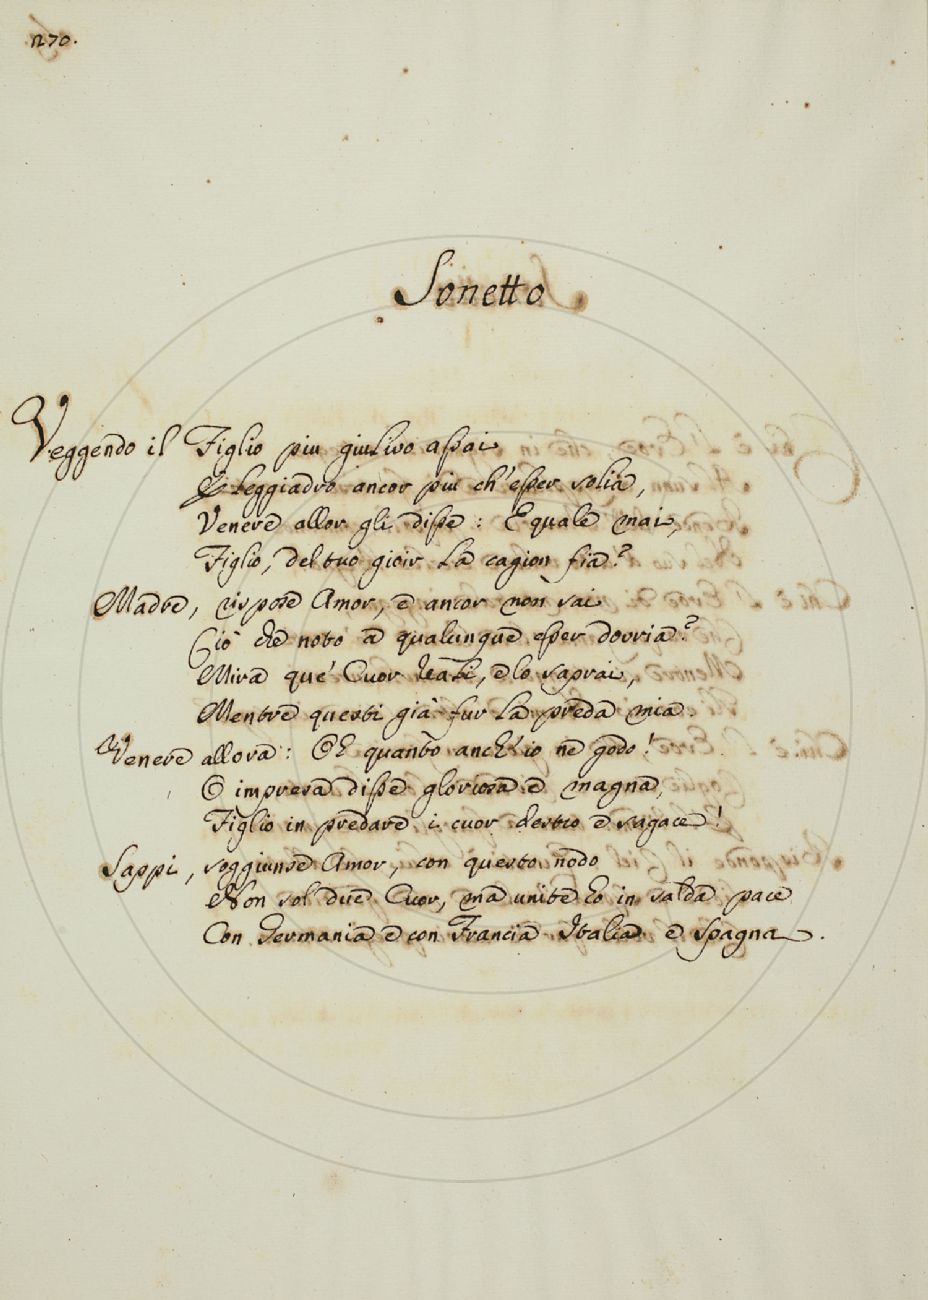 1270.
Sonetto
Veggendo il Figlio piu giulivo assai
E leggiadro ancor piu ch'esser solia,
Venere allor gli disse: E quale mai,
Figlio, del tuo gioir la cagion fia?
Madre, rispose Amor, e ancor non sai
Ciò che noto a qualunque esser dovria?
Mira que' Cuor Reali, e lo saprai,
Mentre questi già fur la preda mia.
Venere allora: Oh quanto anch'io ne godo!
O impresa disse gloriosa e magna,
Figlio in predare i cuor destro e sagace!
Sappi, soggiunse Amor, con questo nodo
Non sol due Cuor, ma unite ho in salda pace
Con Germania e con Francia Italia e Spagna.